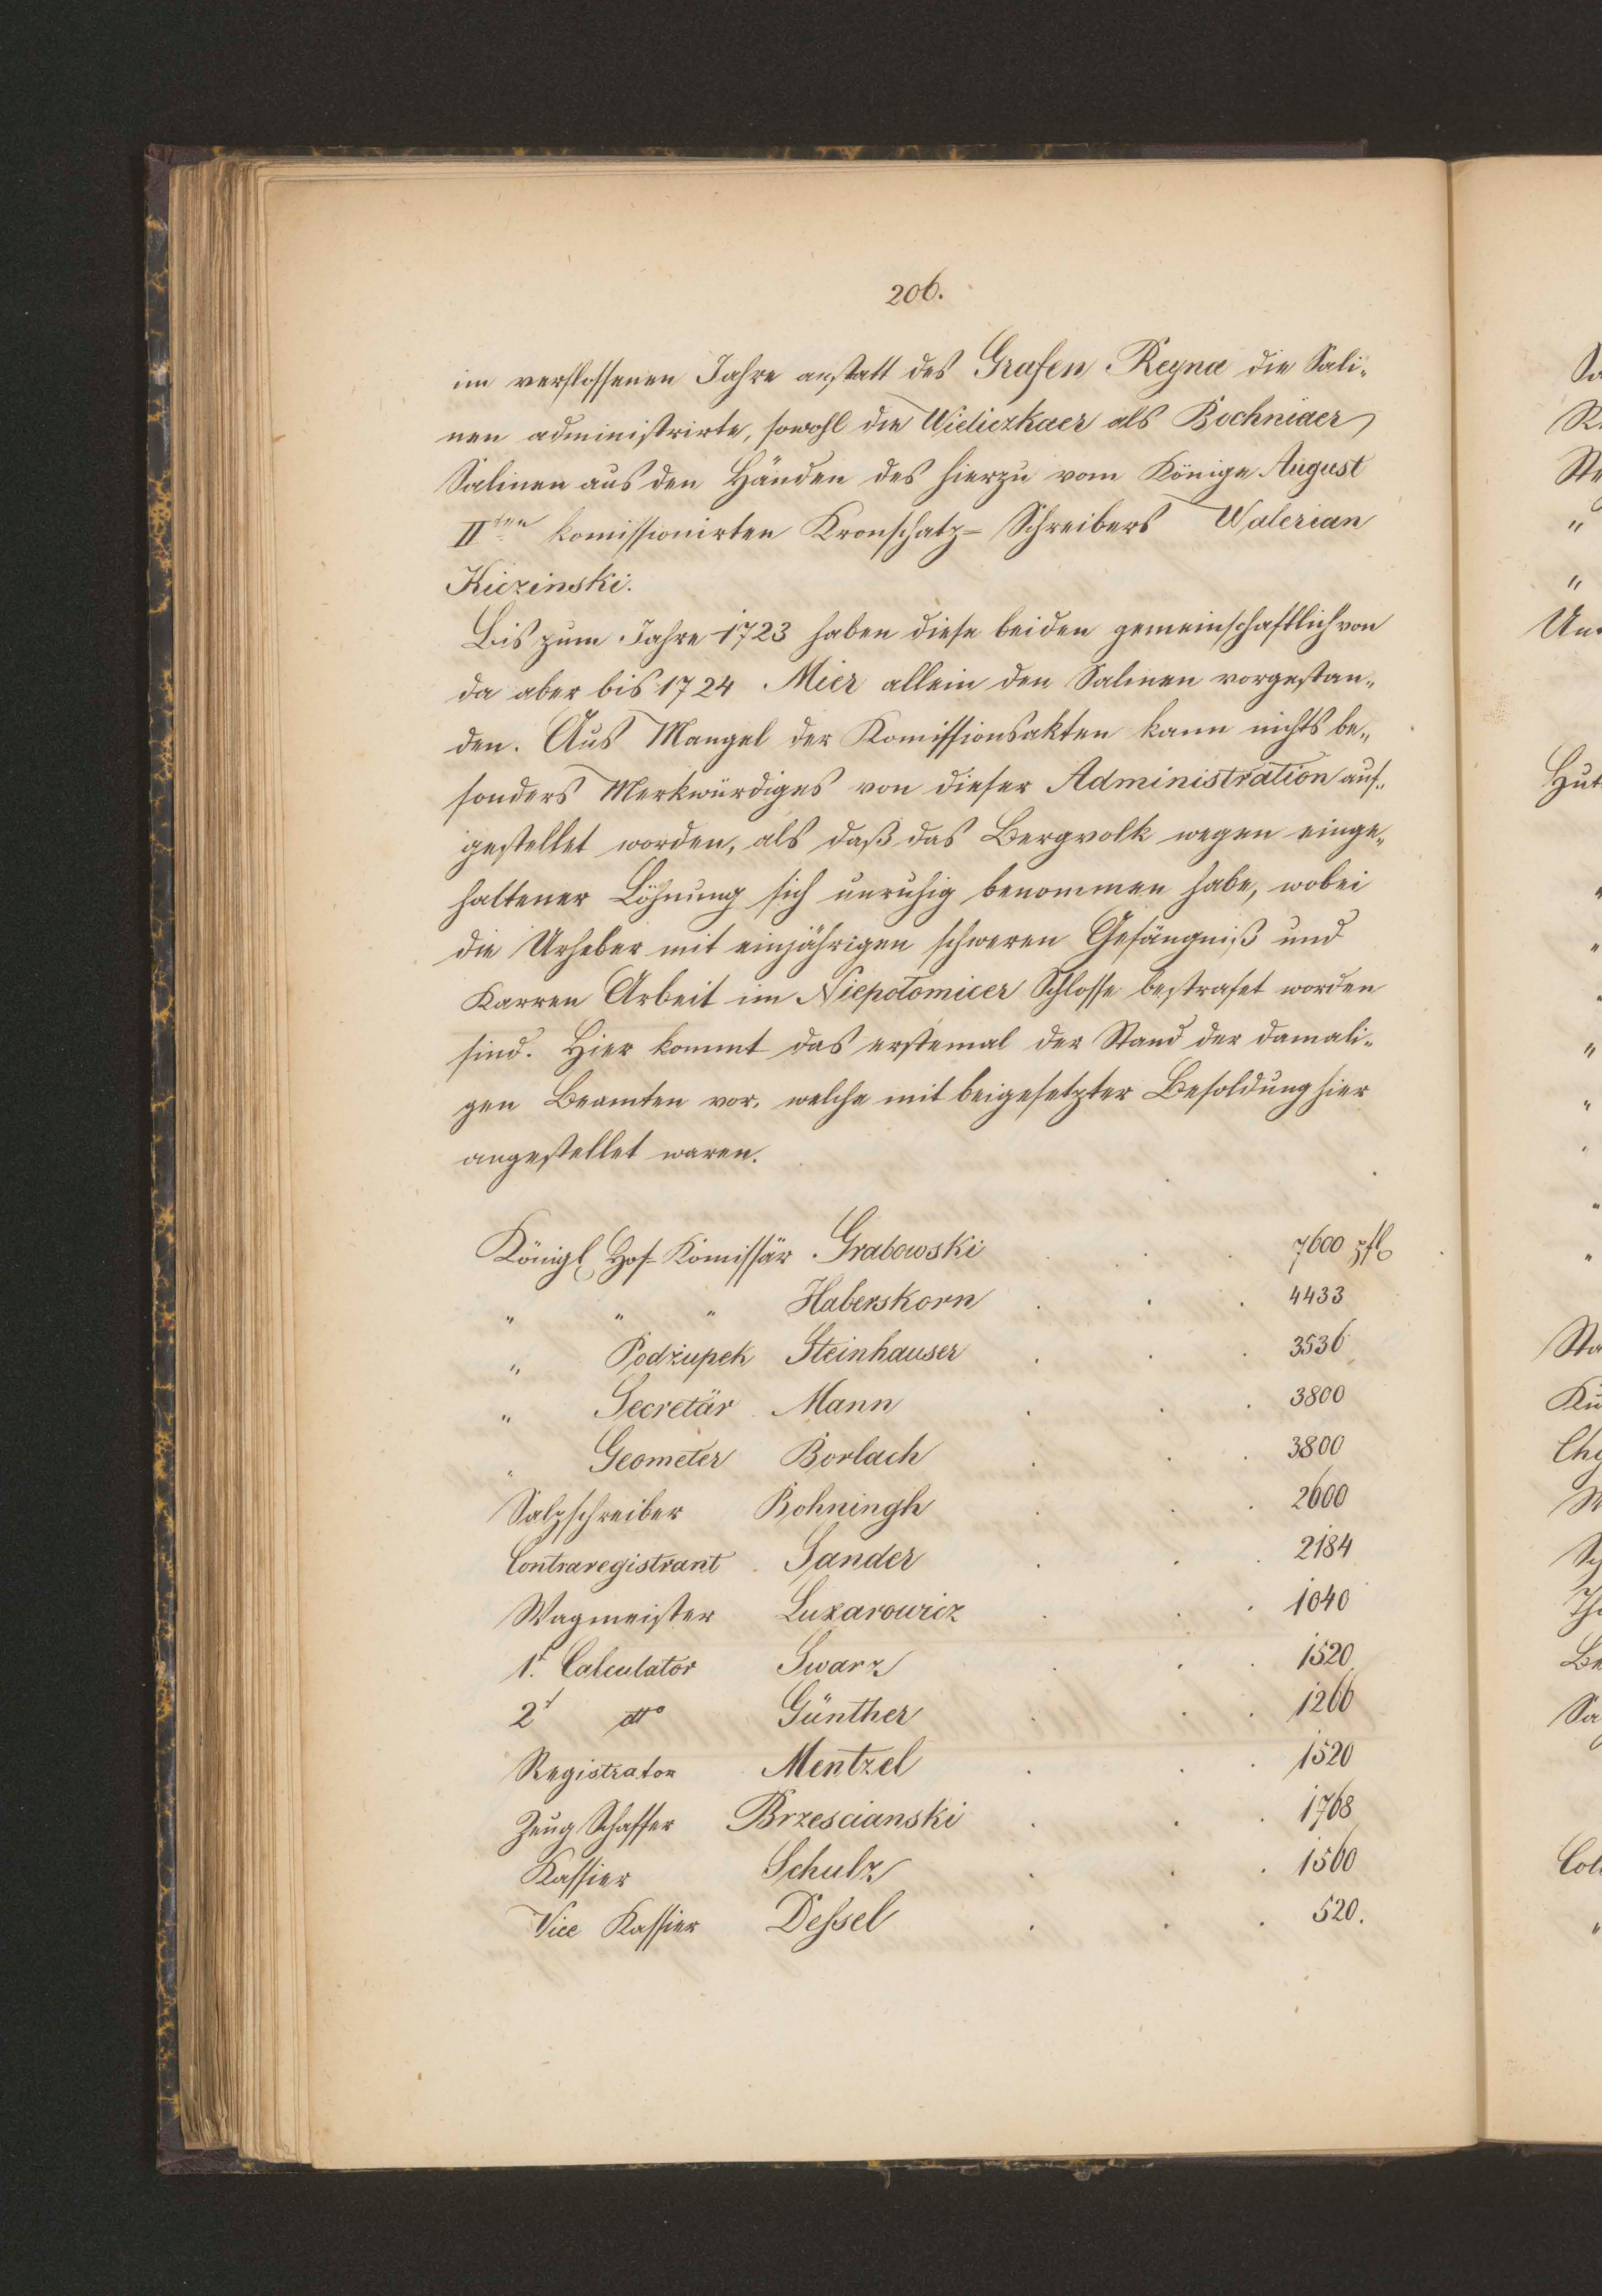 206.
im verflossenen Jahre anstatt des Grafen Reyna die Sali-
nen administrirte, sowohl die Wieliczkaer als Bochniaer
Salinen aus den Händen des hierzu vom Könige August
II ten komissionirten Kronschatz-Schreibers Walerian
Kiczinski.
Bis zum Jahre 1723 haben diese beiden gemeinschaftlich von
da aber bis 1724 Mier allein den Salinen vorgestan-
den. Aus Mangel der Komissionsakten kann nichts be-
sonders Merkwürdiges von dieser Administration auf-
gestellet worden, als daß das Bergvolk wegen einge-
haltener Löhnung sich unruhig benommen habe, wobei
die Urheber mit einjährigen schweren Gefängniß und
Karren Arbeit im Niepotomicer Schlosse bestrafet worden
sind. Hier kommt das erstemal der Stand der damali-
gen Beamten vor, welche mit beigesetzter Besoldung hier
angestellet waren.
Königl Hof-Komissär Grabowski . . . 7600 pfl
" " " Haberskorn . . . 4433
" Podżupek Steinhauser . . . 3536
" Secretär Mann . . . 3800
" Geometer Borlach . . . 3800
Salzschreiber Bohningh . . . 2600
Contraregistrant Sander . . . 2184
Wagmeister Luxarowicz . . . 1040
1t. Calculator Swarz . . . 1520
2t dto Günther . . . 1266
Registrator Mentzel . . . 1520
Zeug Schaffer Brzescianski . . . 1768
Kassier Schulz . . . 1560
Vice Kassier Dessel . . . 520.